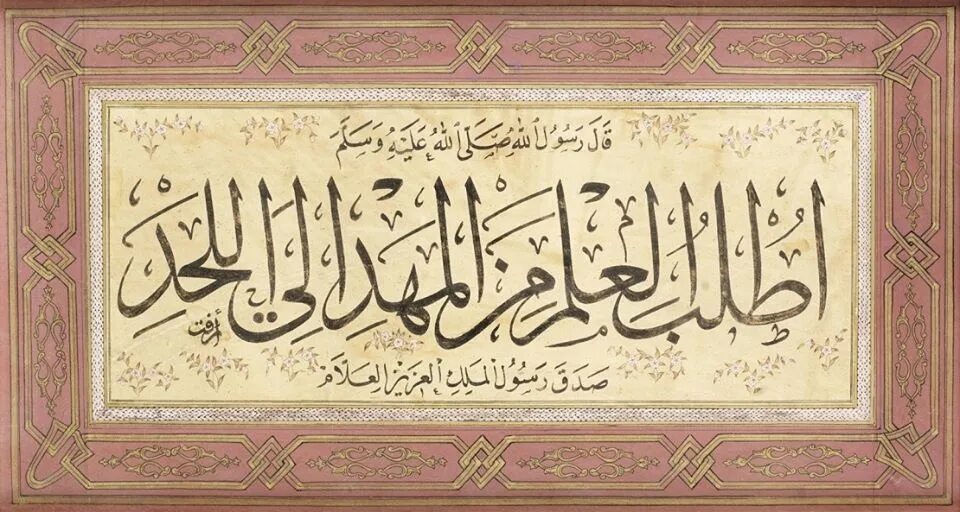 قَالَ رَسُولُ اللهِ صَلَّى اللهُ عَلَيْهِ وَسَلَّمَ
اُطْلُبُ الْعِلْمَ مِنَ الْمَهْدِ اِلَى اللَّحْدِ
صَدَقَ رَسُولُ الْمَلِكِ الْعَزِيزِ الْعَلَّامِ